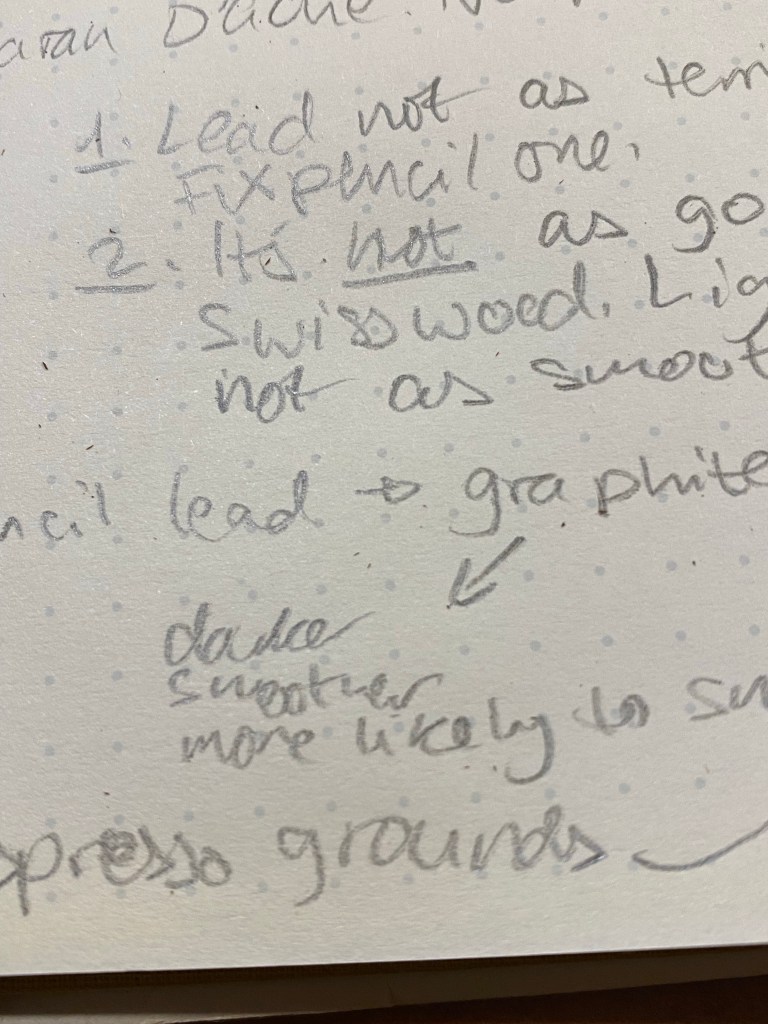 aran D'ache. No
1. Lead not as terri
Fixpencil one.
2. It's not as go
Swisswood. Lig
not as smoot
ncil lead → graphite
↙
darker
smoother
more likely to sm
spresso grounds